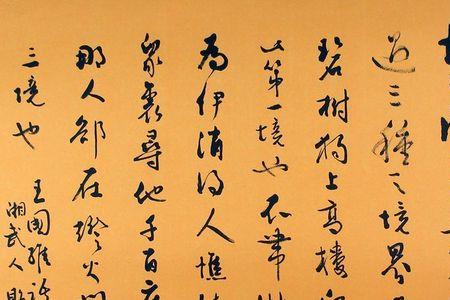 過三種之境界
碧樹獨上高樓
此第一境也衣帶
為伊消得人憔悴
眾裏尋他千百度
那人卻在燈火闌
三境也
王國維
湘武人